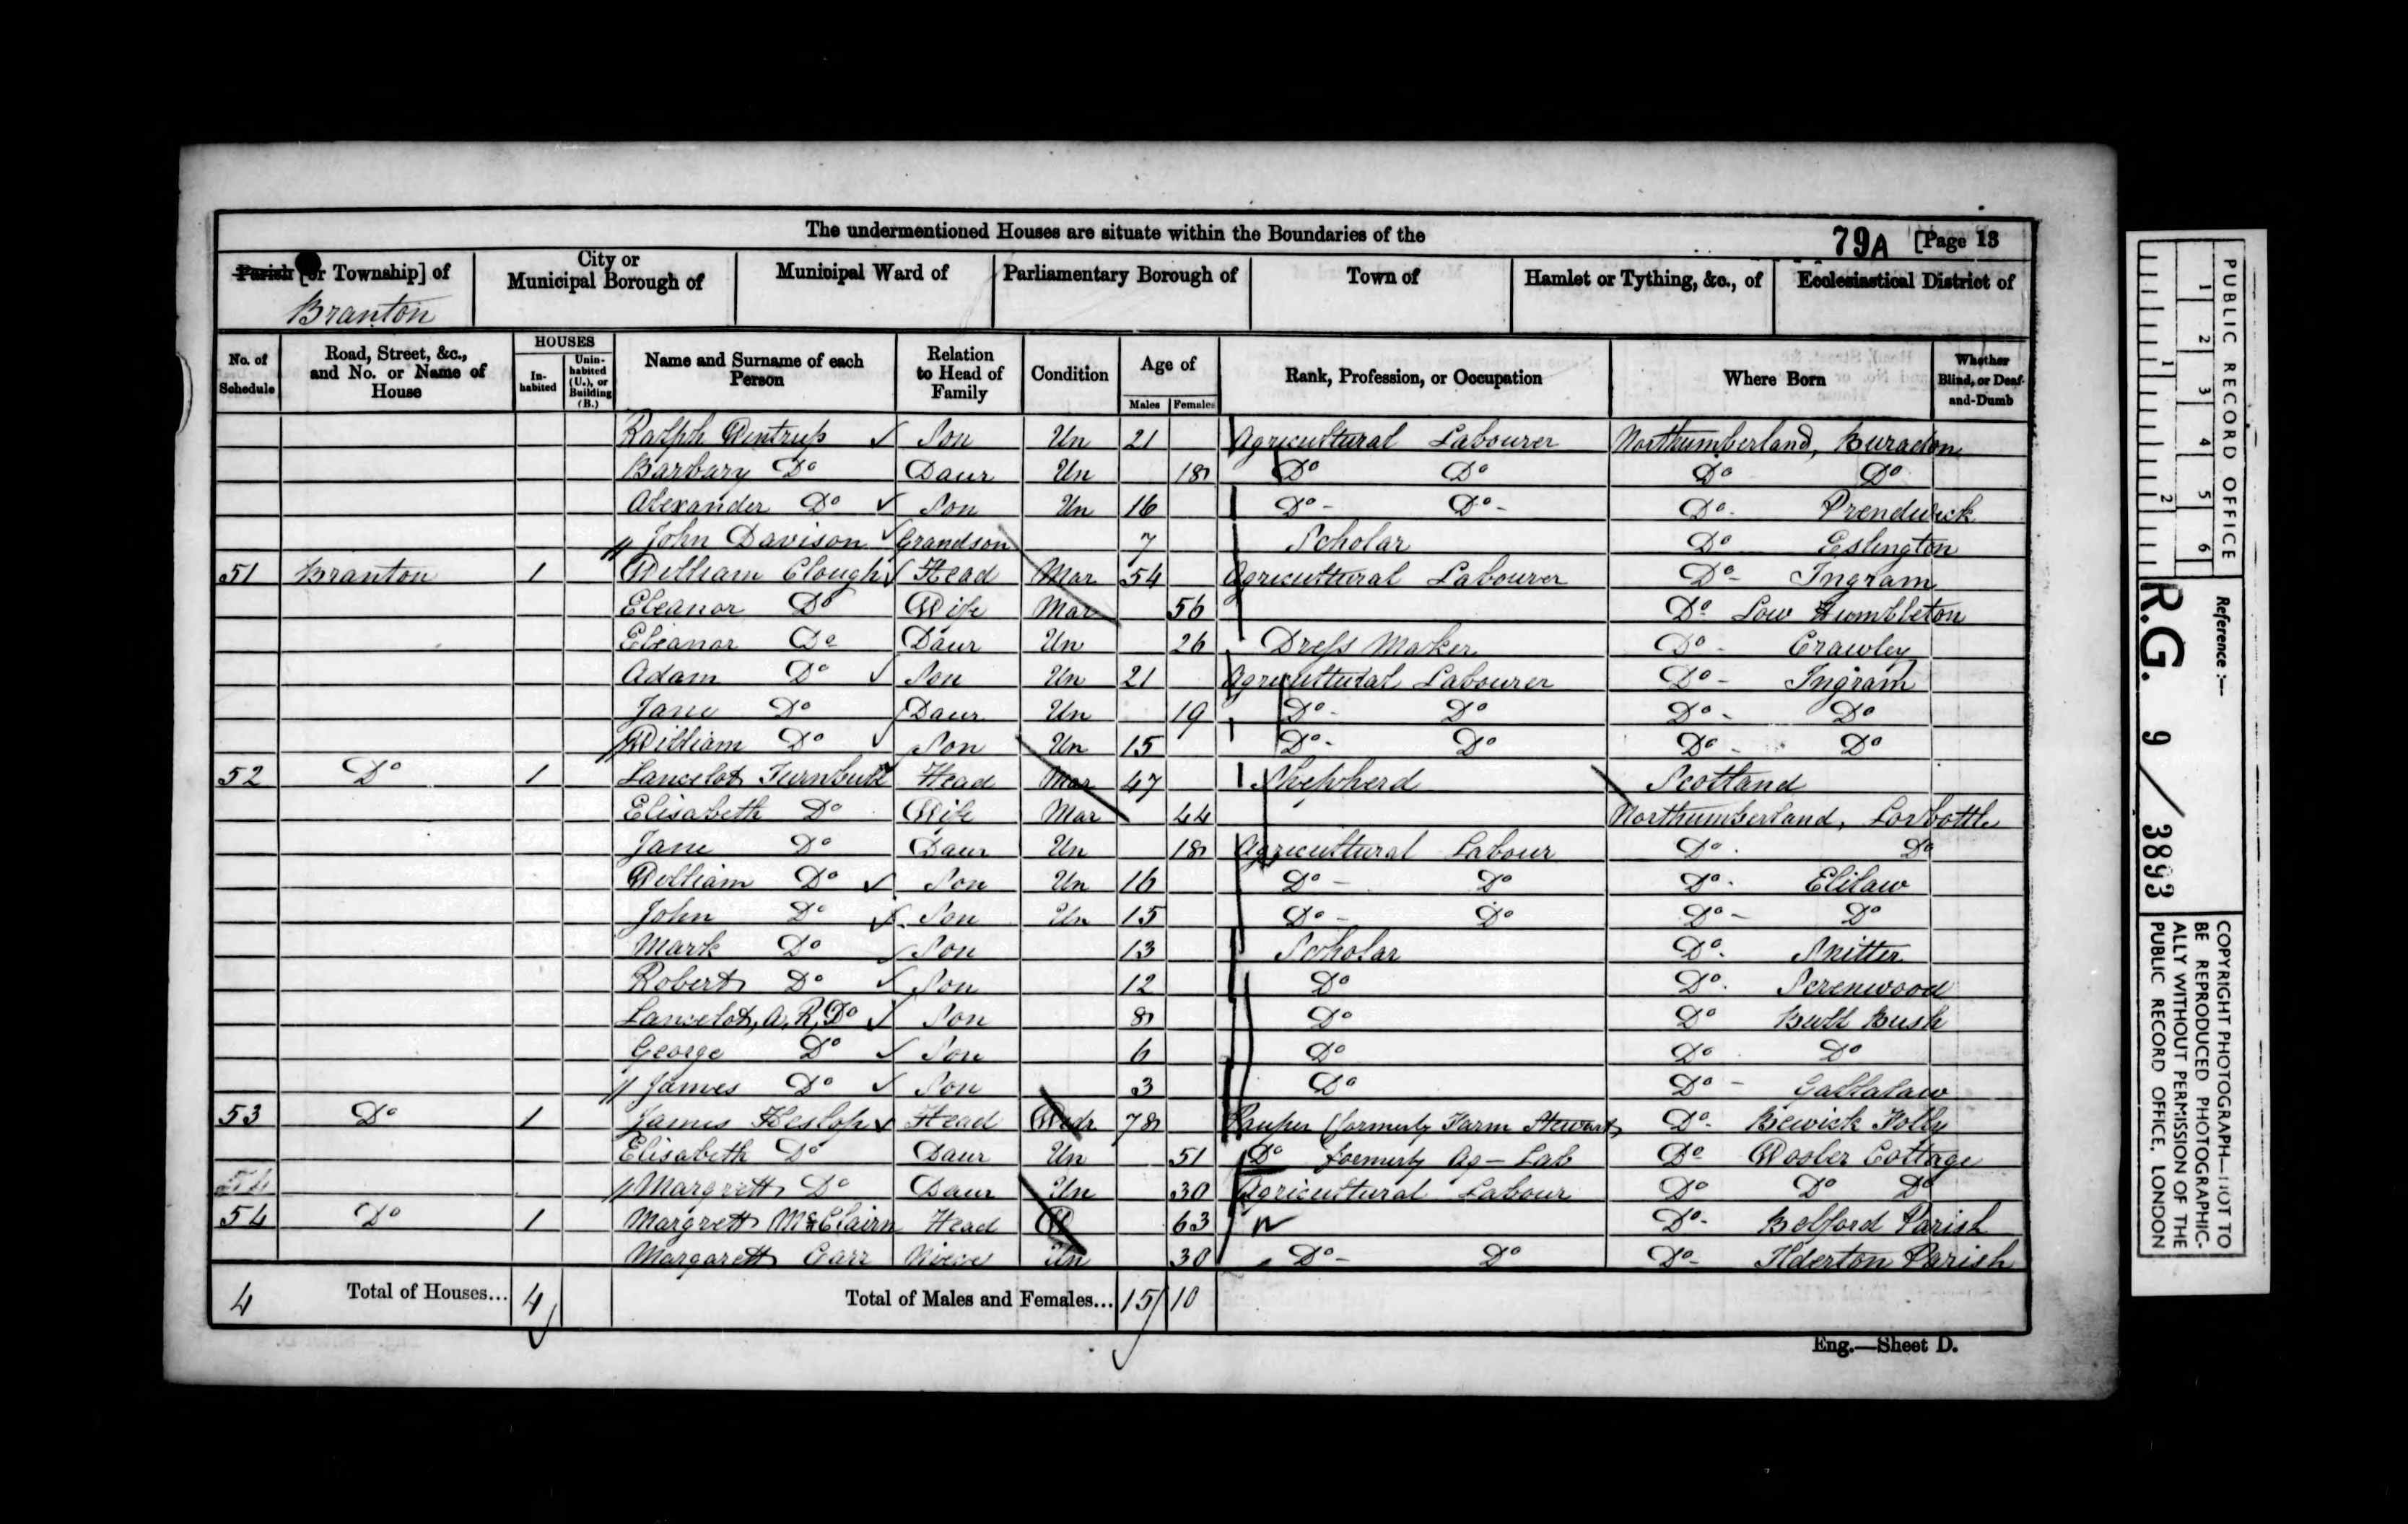 The undermentioned Houses are situate within the Boundaries of the
79A [Page 13
Parish [or Township] of City or Municipal Borough of Municipal Ward of Parliamentary Borough of Town of Hamlet or Tything, &c., of Ecclesiastical District of
Branton
No. of Schedule Road, Street, &c., and No. or Name of House HOUSES In-habited Unin-habited (U.), or Building (B.) Name and Surname of each Person Relation to Head of Family Condition Age of Males Females Rank, Profession, or Occupation Where Born Whether Blind, or Deaf-and-Dumb
Ralph Wintrup Son Un 21 Agricultural Labourer Northumberland, Buradon
Barbary Do Daur Un 18 Do Do Do Do
Alexander Do Son Un 16 Do - Do - Do - Prendwick
John Davison Grandson 7 Scholar Do Eslington
51 Branton 1 William Clough Head Mar 54 Agricultural Labourer Do - Ingram
Eleanor Do Wife Mar 56 Do Low Humbleton
Eleanor Do Daur Un 26 Dress Maker Do - Crawley
Adam Do Son Un 21 Agricultural Labourer Do - Ingram
Jane Do Daur Un 19 Do - Do Do - Do
William Do Son Un 15 Do - Do Do - Do
52 Do 1 Lancelot Turnbull Head Mar 47 Shepherd Scotland
Elisabeth Do Wife Mar 44 Northumberland, Lorbottle
Jane Do Daur Un 18 Agricultural Labour Do - Do
William Do Son Un 16 Do - Do Do - Elilaw
John Do Son Un 15 Do - Do Do - Do
Mark Do Son 13 Scholar Do - Snitter
Robert Do Son 12 Do Do - Screnwood
Lancelot, A, R, Do Son 8 Do Do Bull Bush
George Do Son 6 Do Do Do
James Do Son 3 Do Do - Gallalaw
53 Do 1 James Heslop Head Widr 78 Pauper (formerly Farm Stewart Do - Bewick Folly
Elisabeth Do Daur Un 51 Do formerly Ag - Lab Do Wooler Cottage
54 Margrett Do Daur Un 30 Agricultural Labour Do Do Do
54 Do 1 Margrett McClairn Head W 63 Do - Belford Parish
Margarett Carr Niece Un 30 Do - Do Do - Ilderton Parish
4 Total of Houses... 4 Total of Males and Females... 15 10
Eng.—Sheet D.
PUBLIC RECORD OFFICE
1 2 3 4 5 6
1 2
Reference :—
R.G. 9 / 3893
COPYRIGHT PHOTOGRAPH—NOT TO
BE REPRODUCED PHOTOGRAPHIC-
ALLY WITHOUT PERMISSION OF THE
PUBLIC RECORD OFFICE, LONDON